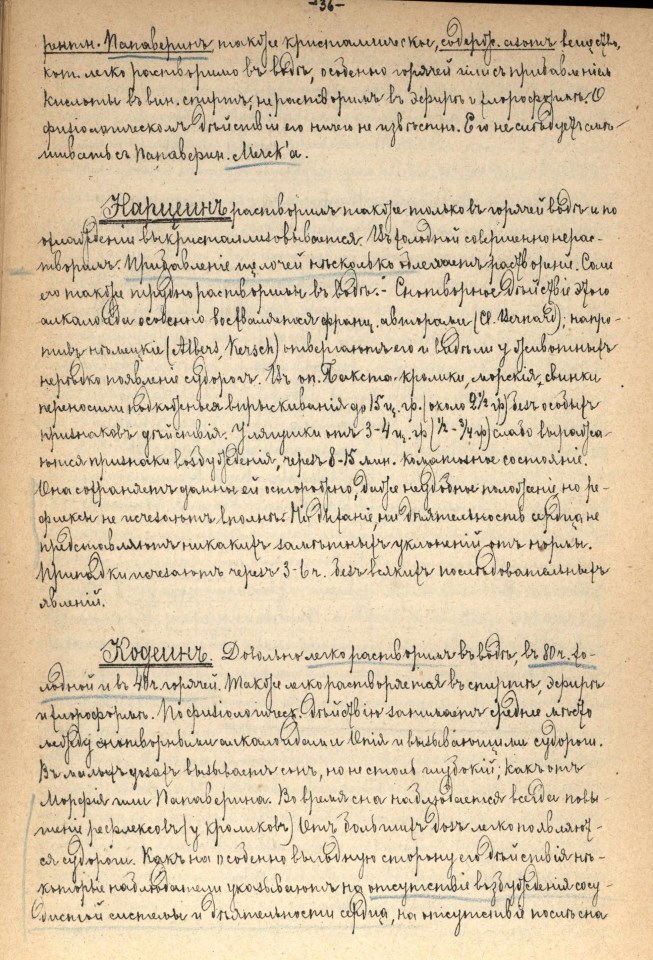 -36-
рентн. Папаверинъ также кристаллическое, содерж. азотъ вещество,
кот. легко растворимо въ водѣ, особенно горячей или съ прибавленіемъ
кислоты въ вин. спиртѣ, не растворимъ въ эфирѣ и хлороформѣ. О
физіологическомъ дѣйствіи его ничего не извѣстно. Его не слѣдуетъ смѣ-
шивать съ Папаверин. Merck'а.
Нарцеинъ растворимъ также только въ горячей водѣ и по
охлажденіи выкристаллизовывается. Въ холодной совершенно нерас-
творимъ. Прибавленіе щелочей нѣсколько облегчаетъ раствореніе. Соли
его также трудно растворимы въ водѣ. - Снотворное дѣйствіе этого
алкалоида особенно восхваляется франц. авторами (Cl. Bernard); напро-
тивъ нѣмецкіе (Albers, Kersch) отвергаютъ его и видѣли у животныхъ
нерѣдко появленіе судорогъ. Въ оп. Бакста кролики, морскія свинки
переносили подкожныя впрыскиванія до 15 ц.гр. (около 2½ гр) безъ особыхъ
признаковъ дѣйствія. У лягушки отъ 3-4 ц.гр (½-¾ гр) слабо выража-
ются признаки возбужденія, черезъ 8-15 мин. коматозное состояніе.
Она сохраняетъ данное ей осторожно, даже неудобное положеніе, но ре-
флексы не исчезаютъ вполнѣ. Ни дыханіе, ни дѣятельность сердца не
представляютъ никакихъ замѣтныхъ уклоненій отъ нормы.
Припадки исчезаютъ черезъ 3-6 ч. безъ всякихъ послѣдовательныхъ
явленій.
Кодеинъ. Довольно легко растворимъ въ водѣ, въ 80 ч. хо-
лодной и въ 40 ч. горячей. Также легко растворяется въ спиртѣ, эфирѣ
и хлороформѣ. По физіологическ. дѣйствію занимаетъ среднее мѣсто
между снотворными алкалоидами Опія и вызывающими судороги.
Въ малыхъ дозахъ вызываетъ сонъ, но не столь глубокій, какъ отъ
Морфія или Папаверина. Во время сна наблюдается всегда повы-
шеніе рефлексовъ (у кроликовъ) Отъ большихъ дозъ легко появляют-
ся судороги. Какъ на особенно выгодную сторону его дѣйствія нѣ-
которые наблюдатели указываютъ на отсутствіе возбужденія сосу-
дистой системы и дѣятельности сердца, на отсутствіе послѣ сна